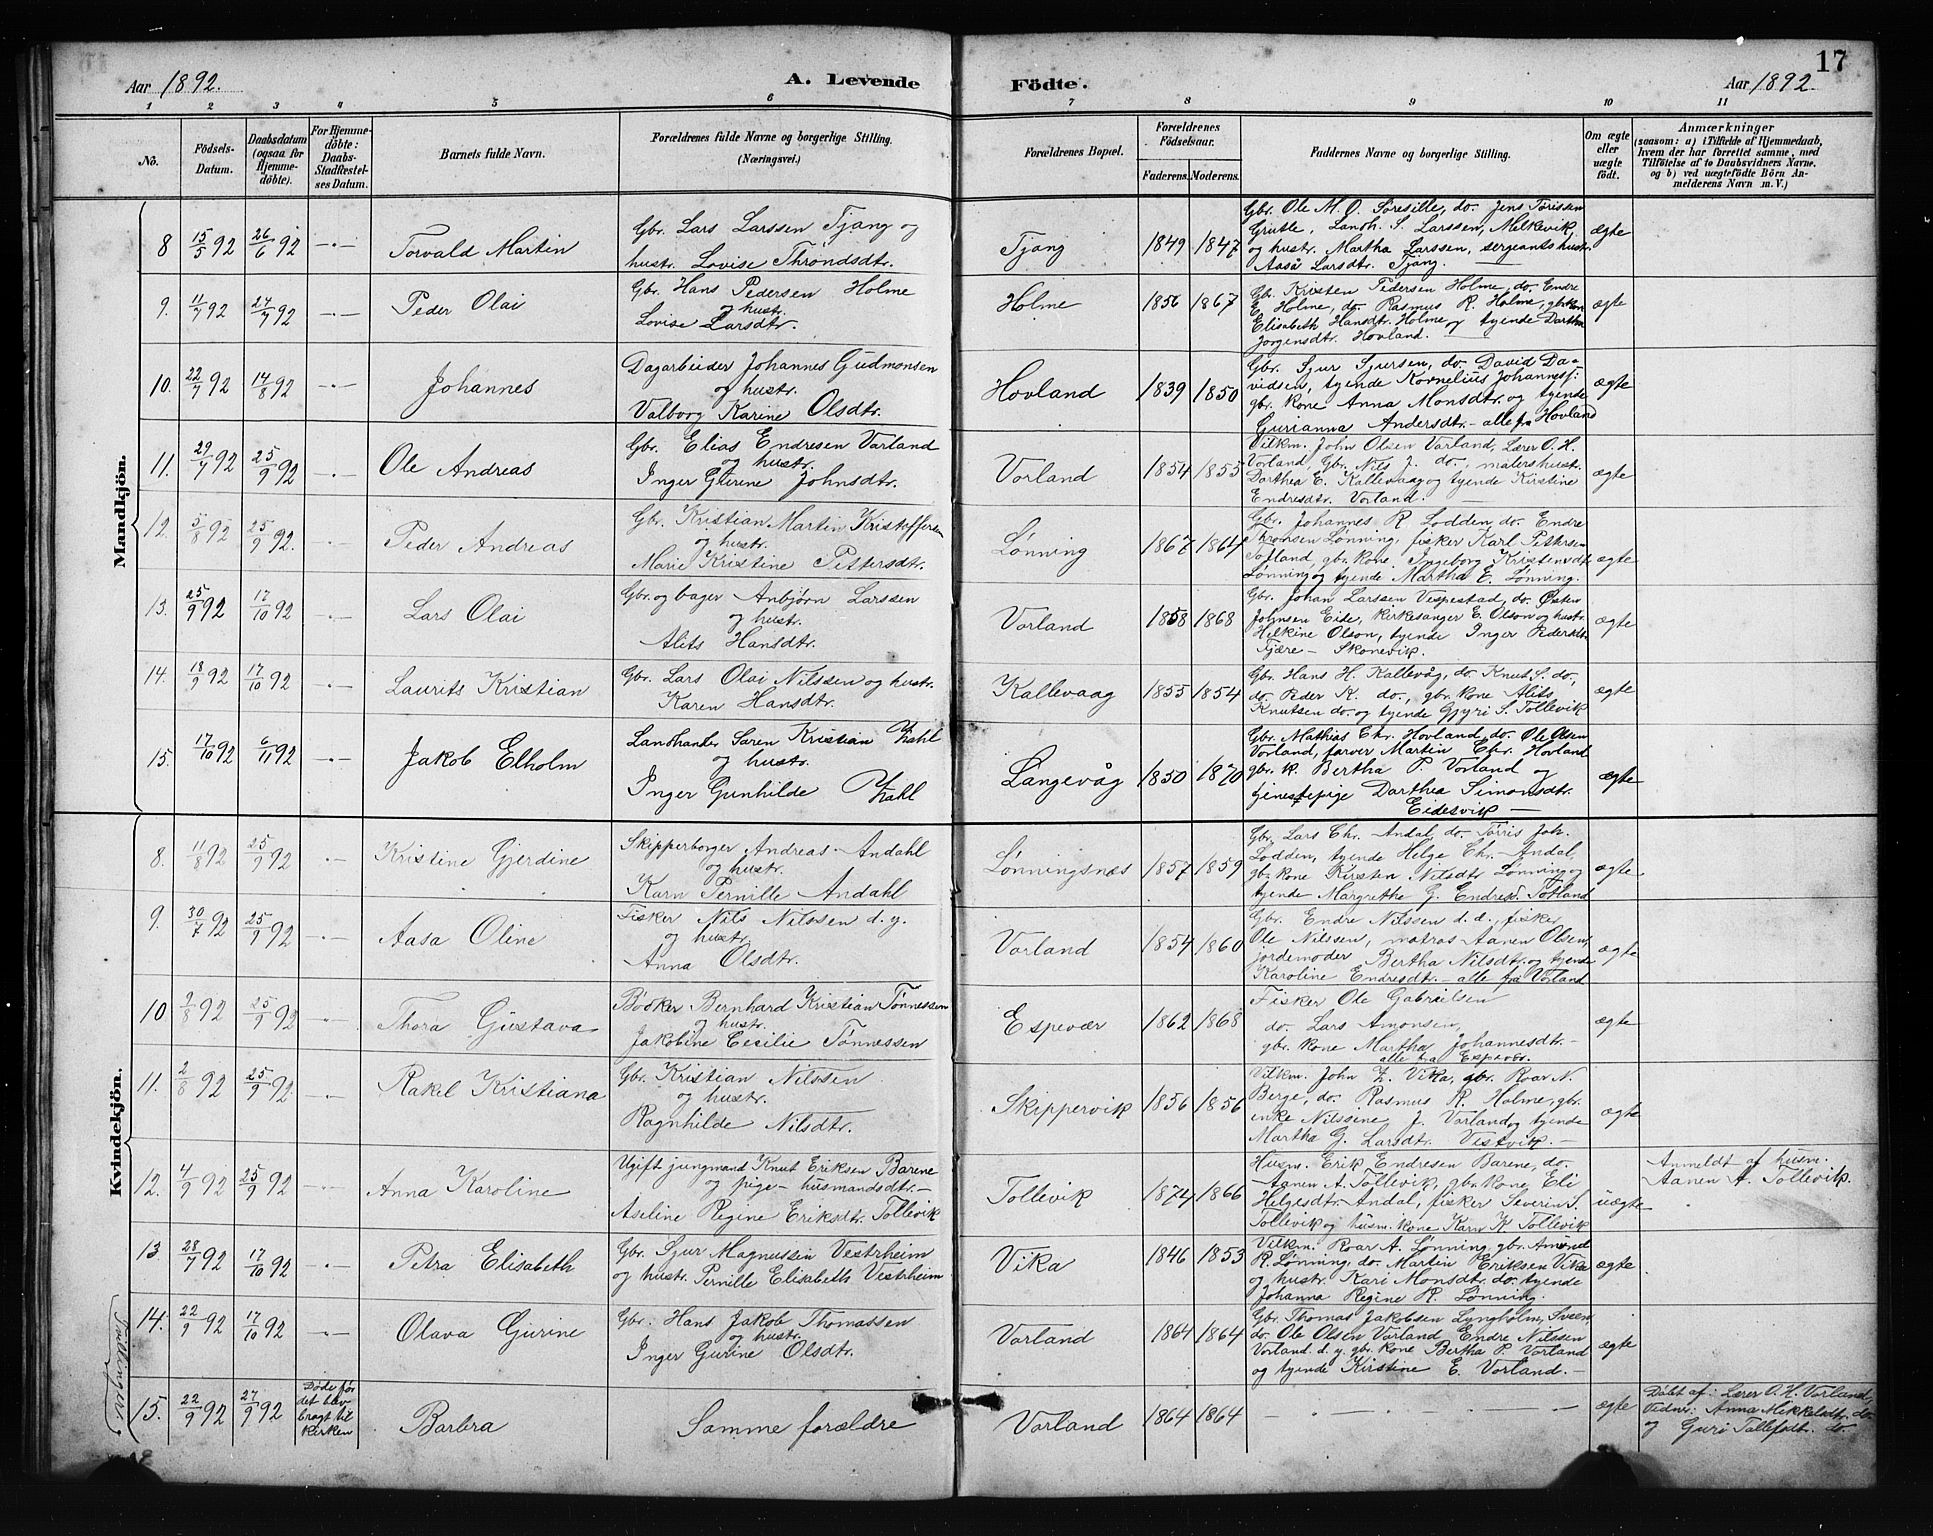 17
Aar 1892. A. Levende Födte. Aar 1892.
1 2 3 4 5 6 7 8 9 10 11
No.
Födsels-
Datum.
Daabsdatum
(ogsaa for
Hjemme-
döbte).
For Hjemme-
döbte:
Daabs-
Stadfæstel-
ses Datum.
Barnets fulde Navn.
Forældrenes fulde Navne og borgerlige Stilling.
(Næringsvei.)
Forældrenes Bopæl.
Forældrenes
Födselsaar.
Faderens. Moderens.
Faddernes Navne og borgerlige Stilling.
Om ægte
eller
uægte
födt.
Anmærkninger
(saasom: a) i Tilfælde af Hjemmedaab,
hvem der har forrettet samme, med
Tilföielse af to Daabsvidners Navne,
og b) ved uægtefödte Börn An-
melderens Navn m. V.)
Mandkjön.
8 15/5 92 26/6 92 -"- Torvald Martin
Gbr. Lars Larssen Tjang og
hustr. Lovise Throndsdtr.
Tjang 1849 1847
Gbr. Ole M. O. Søresille, do. Jens Tørissen
Grutle, Landh. S. Larssen, Melkevik,
og hustr. Martha Larssen, sergeants hustr.
Aasa Larsdtr. Tjang.
ægte
9. 11/7 92 24/7 92 -"- Peder Olai
Gbr. Hans Pedersen Holme
og hustr.
Lovise Larsdtr.
Holme 1856 1867
Gb. Kristen Pedersen Holme, do. Endre
E. Holme, do. Rasmus R. Holme, gbrkon
Elisabeth Hansdtr. Holme og tyende Darthea
Jorgensdtr. Hovland.
ægte
10. 22/7 92 14/8 92 -"- Johannes
Dagarbeider Johannes Gudmonsen
og hustr.
Valborg Karine Olsdtr.
Hovland 1839 1850
Gbr. Sjur Sjursen, do. David Da-
vidsen, tyende Kornelius Johannesf:
gbr. kone Anna Monsdtr. og tyende
Gurianna Andersdtr. - alle fra Hovland
ægte
11. 29/7 92 25/9 92 -"- Ole Andreas
Gbr. Elias Endresen Vorland
og hustr.
Inger Gurine Johnsdtr.
Vorland 1854 1855
Vilkm. John Olsen Vorland, Lærer O. H.
Vorland, Gbr. Nils J. do., malershustr.
Darthea E. Kallevaag og tyende Kirstine
Endresdtr. Vorland.
ægte
12. 5/8 92 25/9 92. -"- Peder Andreas
Gbr. Kristian Martin Kristoffersen
og hustr.
Marie Kristine Pettersdtr.
Lønning 1867 1864
Gbr. Johannes R. Lodden, do. Endre
Thronsen Lønning, fisker Karl Pettersen
Totland, gbr. kone Ingeborg Kristensdtr.
Lønning og tyende Martha E. Lønning.
ægte
13. 25/9 92 17/10 92 -"- Lars Olai
Gbr. og bager Anbjørn Larssen
og hustr.
Alits Hansdtr.
Vorland 1858 1868
Gbr. Johan Larssen Vespestad, do. Østen
Johnsen Eide, kirkesanger E. Olson og hustr.
Helkine Olson, tyende Inger Pedersdtr.
Tjære - Skonevik.
ægte
14. 18/9 92 17/10 92 -"- Laurits Kristian
Gbr. Lars Olai Nilssen og hustr.
Karen Hansdtr.
Kallevaag 1855 1854
Gbr. Hans H. Kallevåg, do. Knut S. do,
do. Peder K. do, gbr. kone Alits
Knutsen do. og tyende Gjyri S. Tollevik
ægte
15. 17/10 92 6/11 92 -"- Jakob Elholm
Landhandler Søren Kristian Zahl
og hustr.
Inger Gunhilde Zahl
Langevåg 1850 1870
Gbr. Mathias Chr. Hovland, do. Ole Olsen
Vorland, farver Martin Chr. Hovland
gbr. k. Bertha P. Vorland og
tjenestepige Darthea Simonsdtr.
Eidesvik
ægte
Kvindekjön.
8. 11/8 92 25/9 92 -"- Kristine Gjerdine
Skipperborger Andreas Andahl
og hustr.
Karn Pernille Andahl
Lønningsnæs 1857 1859
Gbr. Lars Chr. Andal, do. Tørris Joh.
Lodden, tyende Helge Chr. Andal,
gbr. kone Kirsten Nilsdtr Lønning og
tyende Margrethe G. Endresd. Totland
ægte
9. 30/7 92 25/9 92 -"- Aasa Oline
Fisker Nils Nilssen d. y.
og hustr.
Anna Olsdtr.
Vorland 1854 1860
Gbr. Endre Nilssen d. e., fisker
Ole Nilssen, matros Aanen Olsen,
jordemoder Bertha Nilsdtr. og tyende
Karoline Endresdtr. alle fra Vorland
ægte
10 2/8 92 25/9 92 -"- Thora Gustava
Bødker Bernhard Kristian Tønnessen
og hustr.
Jakobine Cecilie Tønnessen
Espevær 1862 1868
Fisker Ole Gabrielsen
do. Lars Amonsen,
gbr. kone Martha Johannesdtr. -
alle fra Espevær.
ægte
11. 2/8 92 25/9 92. -"- Rakel Kristiana
Gbr. Kristian Nilssen
og hustr.
Ragnhilde Nilsdtr.
Skippervik 1856 1856
Vilkm. John Z. Vika, gbr. Roar N.
Berge, do. Rasmus R. Holme, gbr.
enke Nilssine J. Vorland og tyende
Martha G. Larsdtr. Vestvik. -
ægte
12. 4/9 92 25/9 92 -"- Anna Karoline
Ugift jungmand Knut Eriksen Barene
og pige - husmandsdtr. -
Aseline Regine Eriksdtr. Tollevik
Tollevik 1874 1866
Husm. Erik Endresen Barene, do.
Aanen A. Tollevik, gbr. kone Eli
Helgesdtr. Andal, fisker Severin S.
Tollevik og husm. kone Karn K Tollevik
uægte
Anmeldt af husm.
Aanen A. Tollevik.
13. 28/7 92 17/10 92 -"- Petra Elisabeth
Gbr. Sjur Magnussen Vestrheim
og hustr. Pernille Elisabeth Vestrheim
Vika 1846 1853
Vilkm. Roar A. Lønning, gbr. Amund
R. Lønning, do. Martin Eriksen Vika
og hustr. Kari Monsdtr. do. tyende
Johanna Regine R. Lønning.
ægte
Tvillinger.
14. 22/9 92 17/10 92 -"- Olava Gurine
Gbr. Hans Jakob Thomassen
og hustr.
Inger Gurine Olsdtr.
Vorland 1864 1864
Gbr. Thomas Jakobsen Lyngholm, Sveen
do. Ole Olsen Vorland Endre Nilssen
Vorland d. y. gbr. kone Bertha P. Vorland
og tyende Kirstine E. Vorland.
ægte
15. 22/9 92 27/9 92
Døde før
det blev
bragt til
kirken
Barbra Samme forældre Vorland 1864 1864 ægte
Døbt af: Lærer O. H. Vorland,
Vidnr: Anna Mikkelsdtr. do.
og Guri Tollefsdt. do.